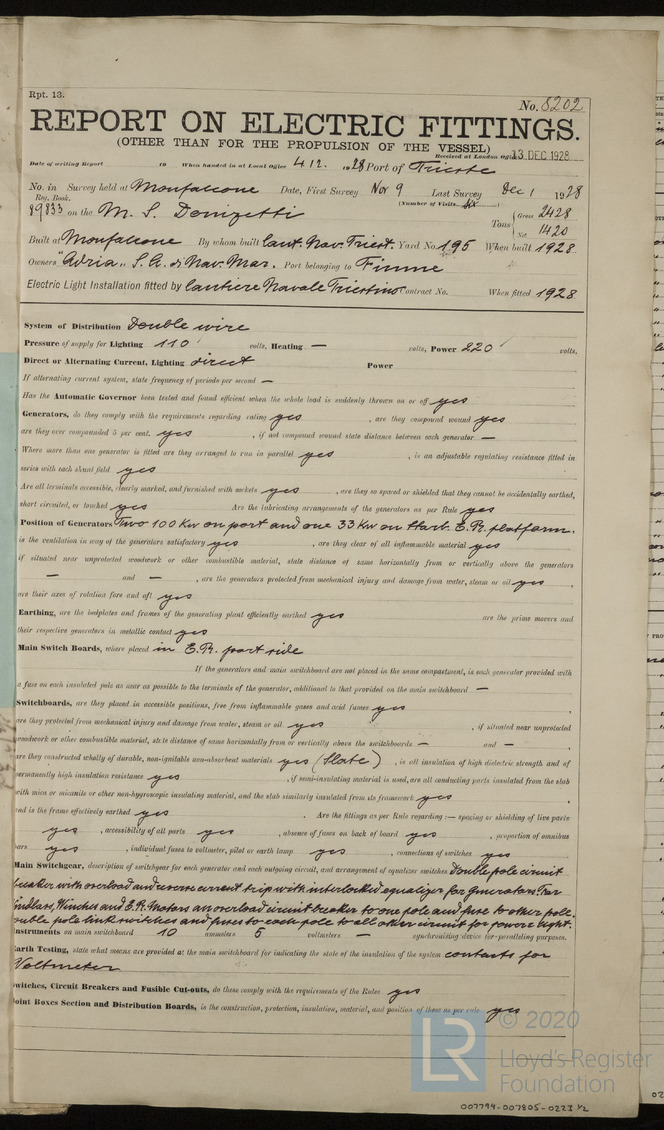 Rpt. 13.
No. 8202
REPORT ON ELECTRIC FITTINGS.
(OTHER THAN FOR THE PROPULSION OF THE VESSEL)
Received at London Office 13 DEC 1928
Date of writing Report 19 When handed in at Local Office 4.12. 1928 Port of Trieste
No. in Survey held at Monfalcone Date, First Survey Nov 9 Last Survey Dec 1 1928
Reg. Book. (Number of Visits )
89833 on the M. S. Donizetti Tons { Gross 2428
Net 1420
Built at Monfalcone By whom built Cant. Nav. Triest. Yard No. 195 When built 1928
Owners "Adria" S. A. di Nav. Mar. Port belonging to Fiume
Electric Light Installation fitted by Cantiere Navale Triestino Contract No. When fitted 1928
System of Distribution Double wire
Pressure of supply for Lighting 110 volts, Heating — volts, Power 220 volts,
Direct or Alternating Current, Lighting direct Power
If alternating current system, state frequency of periods per second —
Has the Automatic Governor been tested and found efficient when the whole load is suddenly thrown on or off yes
Generators, do they comply with the requirements regarding rating yes , are they compound wound yes
are they over compounded 5 per cent. yes , if not compound wound state distance between each generator —
Where more than one generator is fitted are they arranged to run in parallel yes , is an adjustable regulating resistance fitted in
series with each shunt field yes
Are all terminals accessible, clearly marked, and furnished with sockets yes , are they so spaced or shielded that they cannot be accidentally earthed,
short circuited, or touched yes Are the lubricating arrangements of the generators as per Rule yes
Position of Generators Two 100 Kw on port and one 33 Kw on Starb. E.R. platform.
is the ventilation in way of the generators satisfactory yes , are they clear of all inflammable material yes
if situated near unprotected woodwork or other combustible material, state distance of same horizontally from or vertically above the generators
— and — , are the generators protected from mechanical injury and damage from water, steam or oil yes ,
are their axes of rotation fore and aft yes
Earthing, are the bedplates and frames of the generating plant efficiently earthed yes are the prime movers and
their respective generators in metallic contact yes
Main Switch Boards, where placed in E.R. port side
If the generators and main switchboard are not placed in the same compartment, is each generator provided with
a fuse on each insulated pole as near as possible to the terminals of the generator, additional to that provided on the main switchboard —
Switchboards, are they placed in accessible positions, free from inflammable gases and acid fumes yes ,
are they protected from mechanical injury and damage from water, steam or oil yes , if situated near unprotected
woodwork or other combustible material, state distance of same horizontally from or vertically above the switchboards — and — ,
are they constructed wholly of durable, non-ignitable non-absorbent materials yes (Slate) , is all insulation of high dielectric strength and of
permanently high insulation resistance yes , if semi-insulating material is used, are all conducting parts insulated from the slab
with mica or micanite or other non-hygroscopic insulating material, and the slab similarly insulated from its framework yes ,
and is the frame effectively earthed yes . Are the fittings as per Rule regarding:— spacing or shielding of live parts
yes , accessibility of all parts yes , absence of fuses on back of board yes , proportion of omnibus
bars yes , individual fuses to voltmeter, pilot or earth lamp yes , connections of switches yes
Main Switchgear, description of switchgear for each generator and each outgoing circuit, and arrangement of equalizer switches Double pole circuit
breaker with overload and reverse current trip with interlocked equalizer for generators. For
Windlass, Winches and E.R. Motors an overload circuit breaker to one pole and fuse to other pole.
Double pole link switches and fuses to each pole to all other circuit for power & light.
Instruments on main switchboard 10 ammeters 5 voltmeters — synchronising device for paralleling purposes.
Earth Testing, state what means are provided at the main switchboard for indicating the state of the insulation of the system contacts for
Voltmeter
Switches, Circuit Breakers and Fusible Cut-outs, do these comply with the requirements of the Rules yes
Joint Boxes Section and Distribution Boards, is the construction, protection, insulation, material, and position of these as per rule yes
© 2020
LR Lloyd's Register
Foundation
007794-007805-0223 1/2